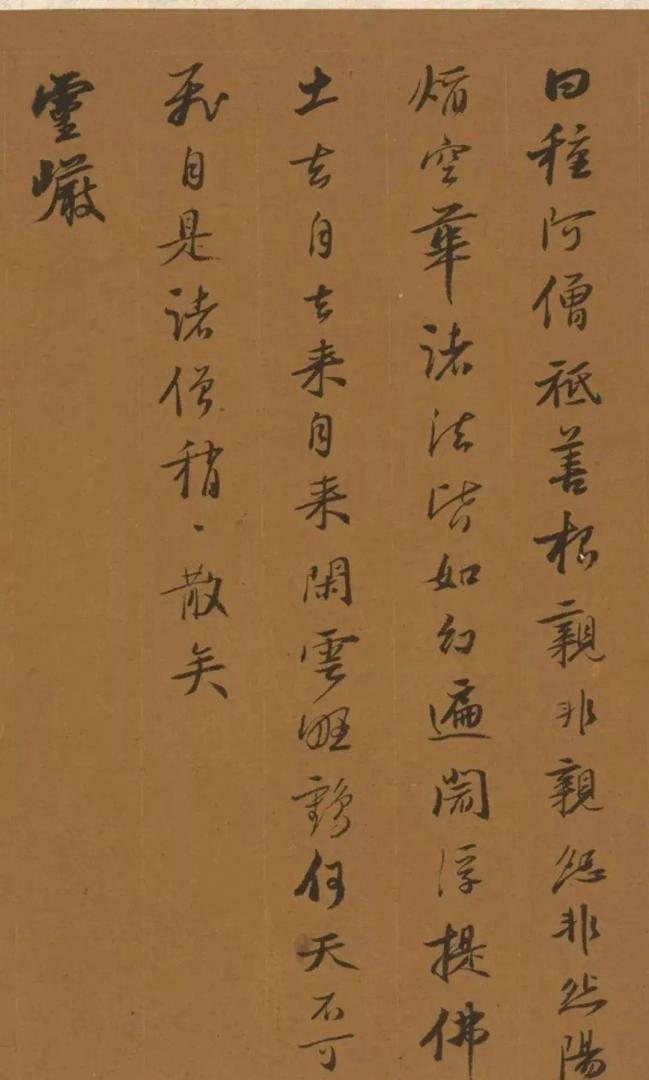 曰種阿僧祇善根親非親怨非怨陽
焰空華諸法皆如幻遍閻浮提佛
土去自去来自来閑雲野鶴何天不可
飛自是諸僧稍〻散矣
靈巖